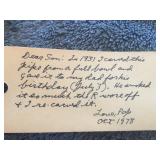 Dear Son: In 1931 I carved this
Pipe from a full bowl and
gave it to my dad for his
birthday (July 5). He smoked
it so much the R wore off
& I re-carved it.
Love, Pop
OCT 1978